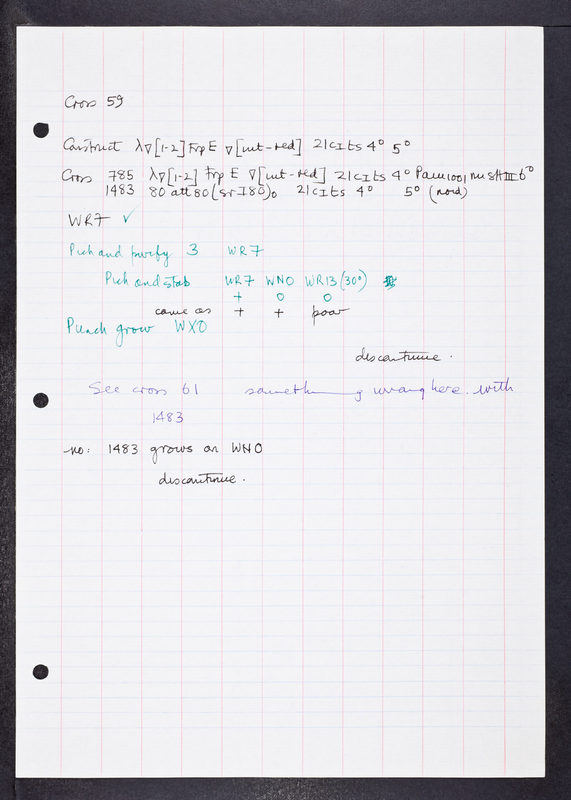 Cross 59
Construct λ∇[1-2] trp E ∇[int-red] 21 cI ts 4° 5°
Cross 785 λ∇[1-2] trp E ∇[int-red] 21 cI ts 4° Pam1001 nu SHIII 6°
1483 80 att 80 (sr I 80)° 21 cI ts 4° 5° (nord)
WR7 ✓
Pick and purify 3 WR7
Pick and stab WR7 WNO WR13 (30°)
+ 0 0
came as + + poor
Punch grow WXO
discontinue.
See cross 61 something wrong here. with
1483
no: 1483 grows on WNO
discontinue.